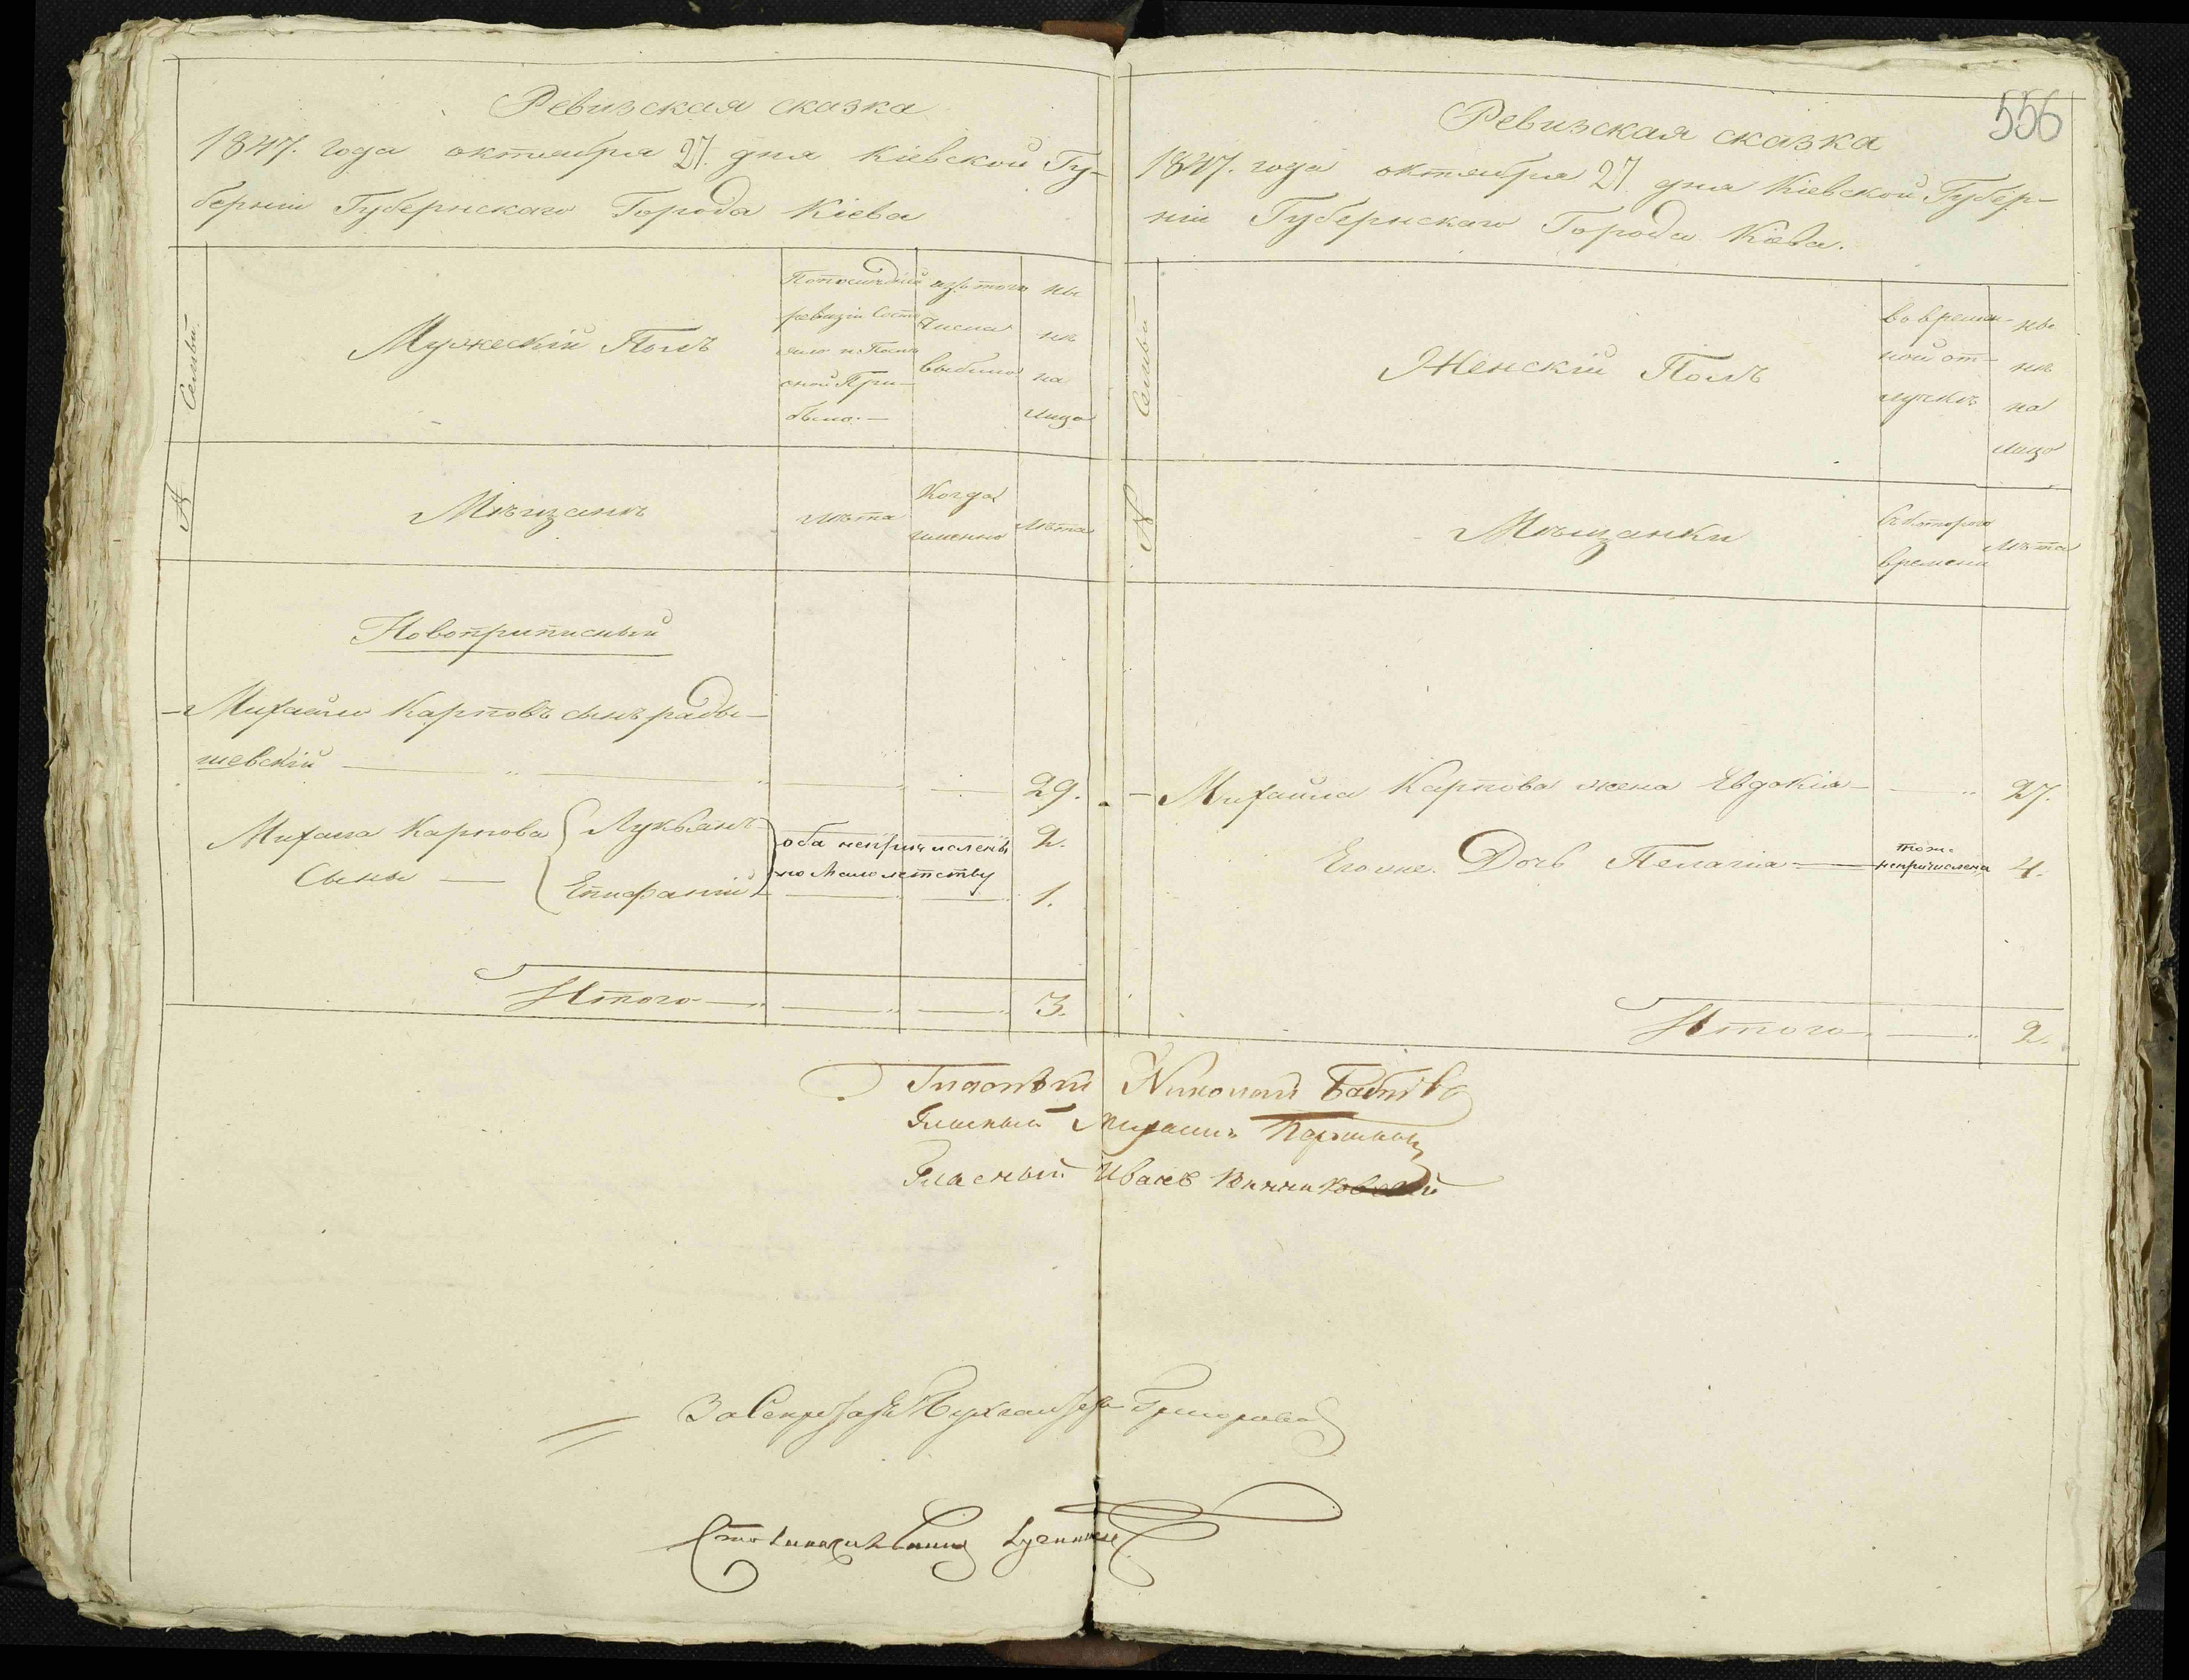 Ревизская сказка
1847. года октября 27. дня Кіевской Гу-
берніи Губернскаго Города Кіева
Семьи
Мужескій Полъ
По последней
ревизіи состо
яло и после
оной при-
было.—
изъ того
числа
выбыло
ны
нѣ
на
лицо
№
Мѣщанъ
лѣта
Когда
именно
Лѣта
Новоприписный
Михайло Карповъ сынъ Рады-
шевскій 29.
Михаила Карпова Сыны
Лукьянъ 2.
Епифаній 1.
оба непричислены
по малолетству
Итого 3.
556
Ревизская сказка
1847. года октября 27. дня Кіевской Губер-
ніи Губернскаго Города Кіева.
Семьи
Женскій Полъ
во времен-
ной от-
лучкѣ
ны
нѣ
на
лицо
№
Мѣщанки
Съ котораго
времени
Лѣта
Михаила Карпова жена Евдокія 27.
Его же Дочь Пелагія 4.
тоже
непричислена
Итого 2.
Николай
Гласный Михаилъ
Гласный Иванъ Винниковскій
За Секретаря